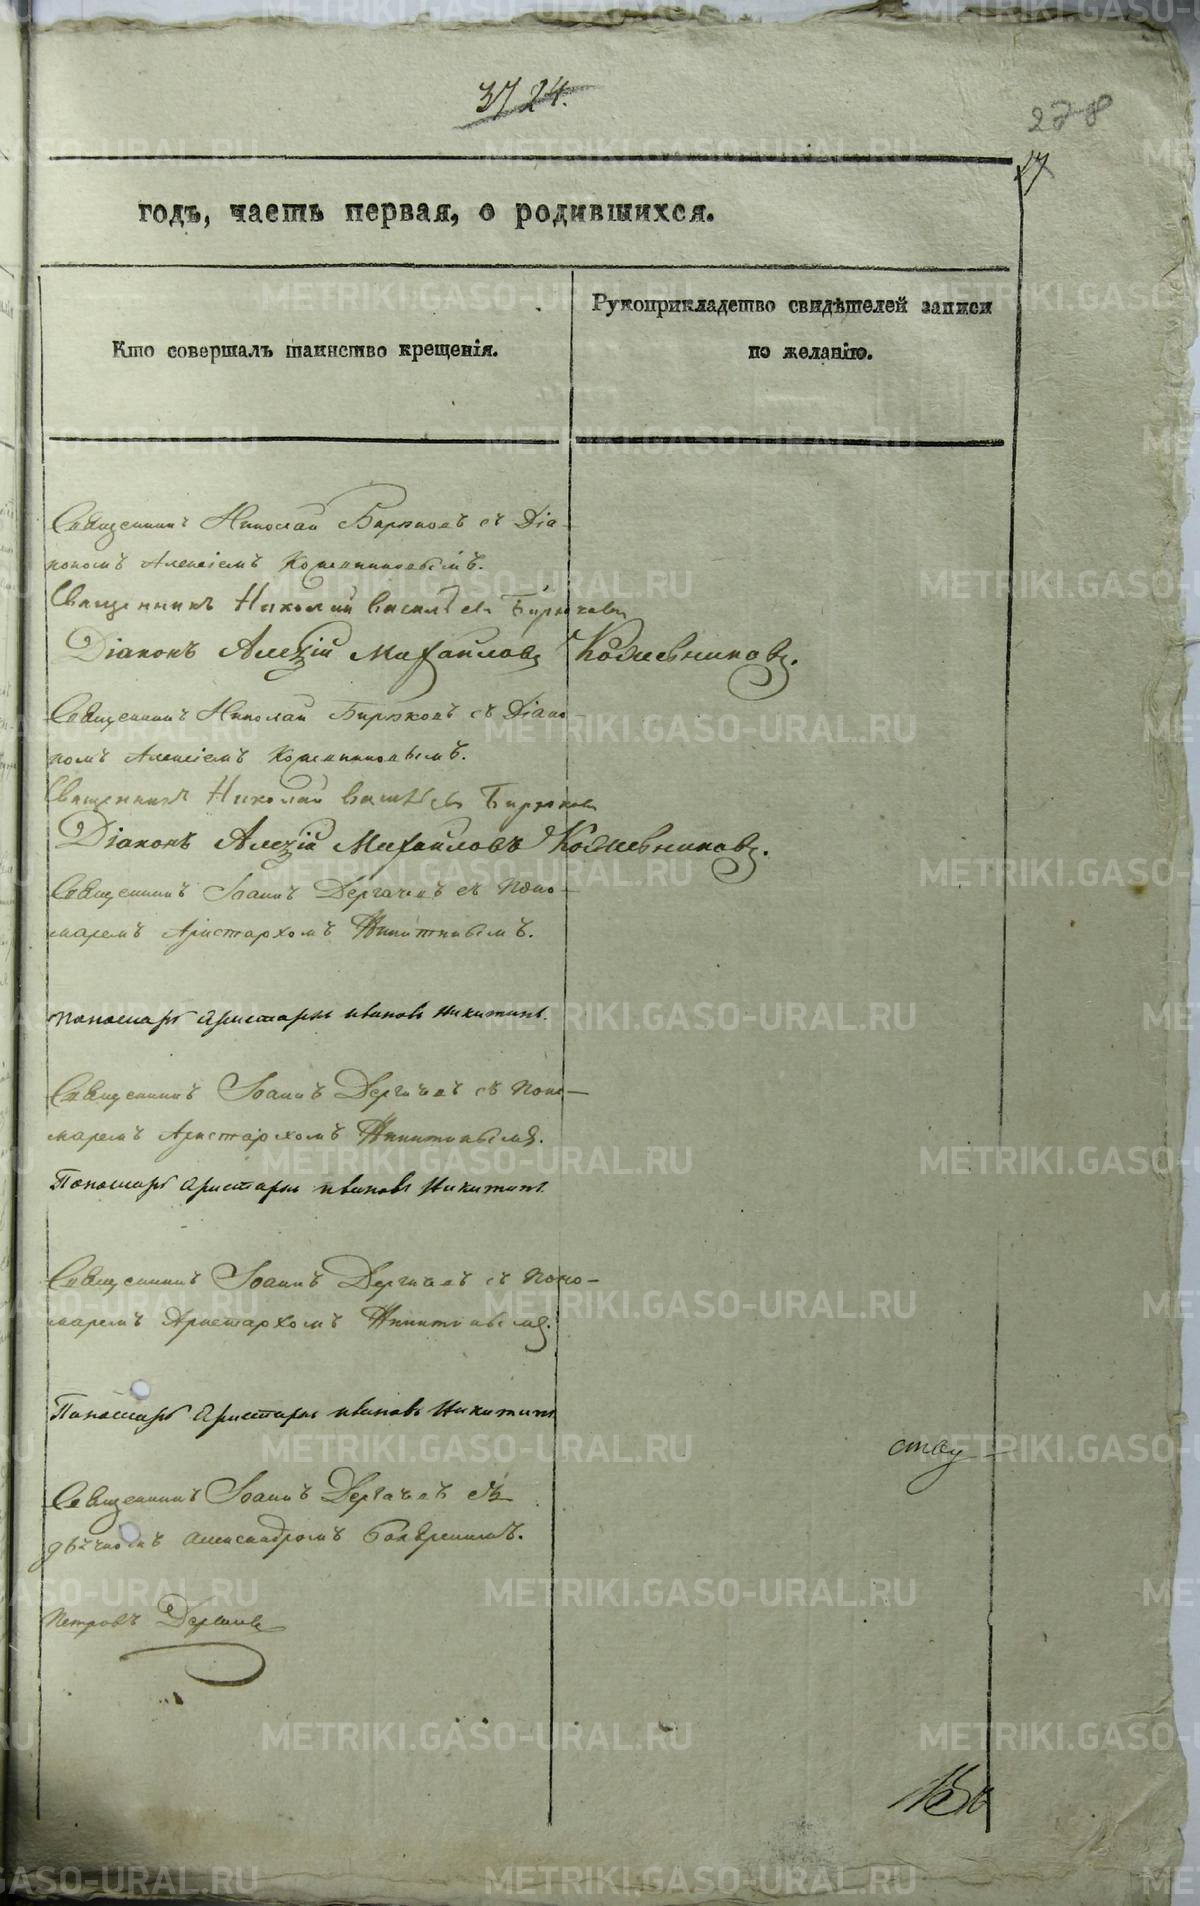 37 24.
278
27
годъ, часть первая, о родившихся.
Кто совершалъ таинство крещенія.
Рукоприкладство свидѣтелей записи
по желанію.
Священникъ Николай Бирюковъ съ Діа-
кономъ Алексіемъ Кожевниковымъ.
Священникъ Николай Васильевъ Бирюковъ
Діаконъ Алексій Михайловъ Кожевниковъ.
Священникъ Николай Бирюковъ съ Діако-
номъ Алексіемъ Кожевниковымъ.
Священникъ Николай Васильевъ Бирюковъ
Діаконъ Алексій Михайловъ Кожевниковъ.
Священникъ Іоаннъ Дергачевъ съ Поно-
маремъ Аристархомъ Никитинымъ.
Пономарь Аристархъ Ивановъ Никитинъ.
Священникъ Іоаннъ Дергачевъ съ Поно-
маремъ Аристархомъ Никитинымъ.
Пономарь Аристархъ Ивановъ Никитинъ.
Священникъ Іоаннъ Дергачевъ съ Поно-
маремъ Аристархомъ Никитинымъ.
Пономарь Аристархъ Ивановъ Никитинъ
ству
Священникъ Іоаннъ Дергачевъ съ
дьячкомъ Александромъ
Петровъ Дергачевъ
METRIKI.GASO-URAL.RU